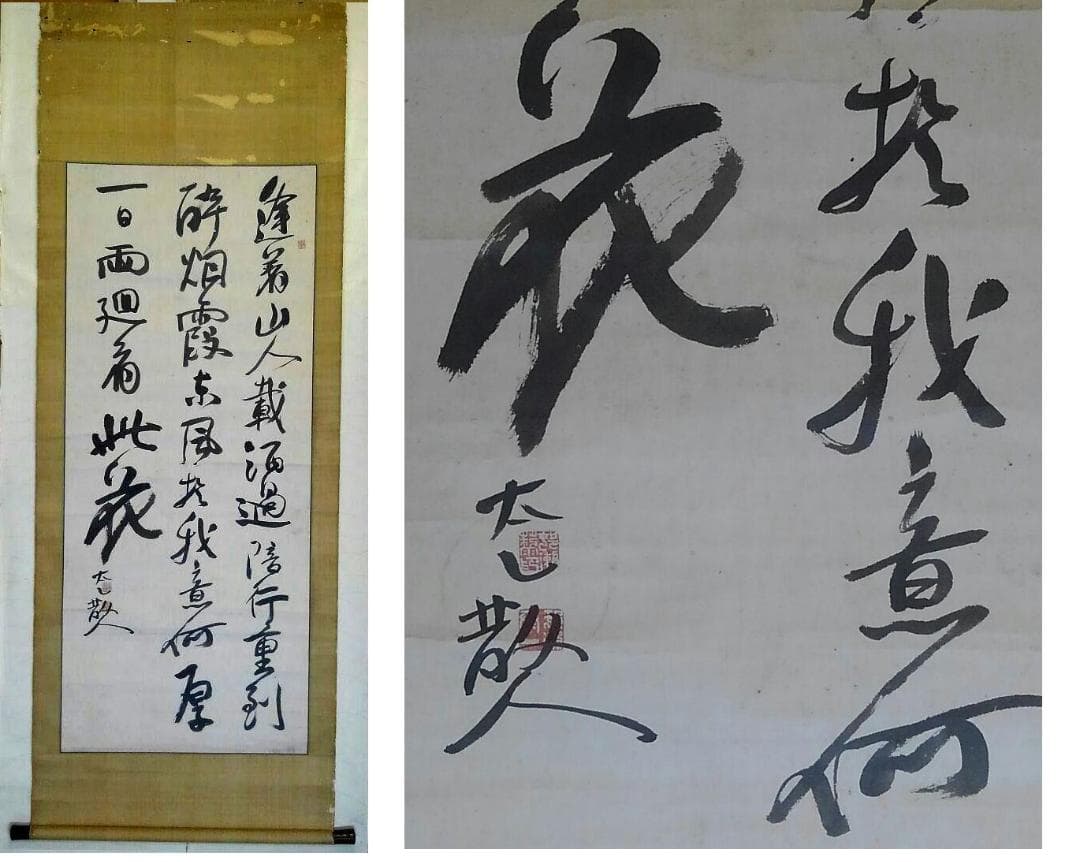 逢着山人載酒過陪行重到
酔烟霞東風於我意何厚
一日兩廻看此花
太乙散人
於我意何
花
太乙散人